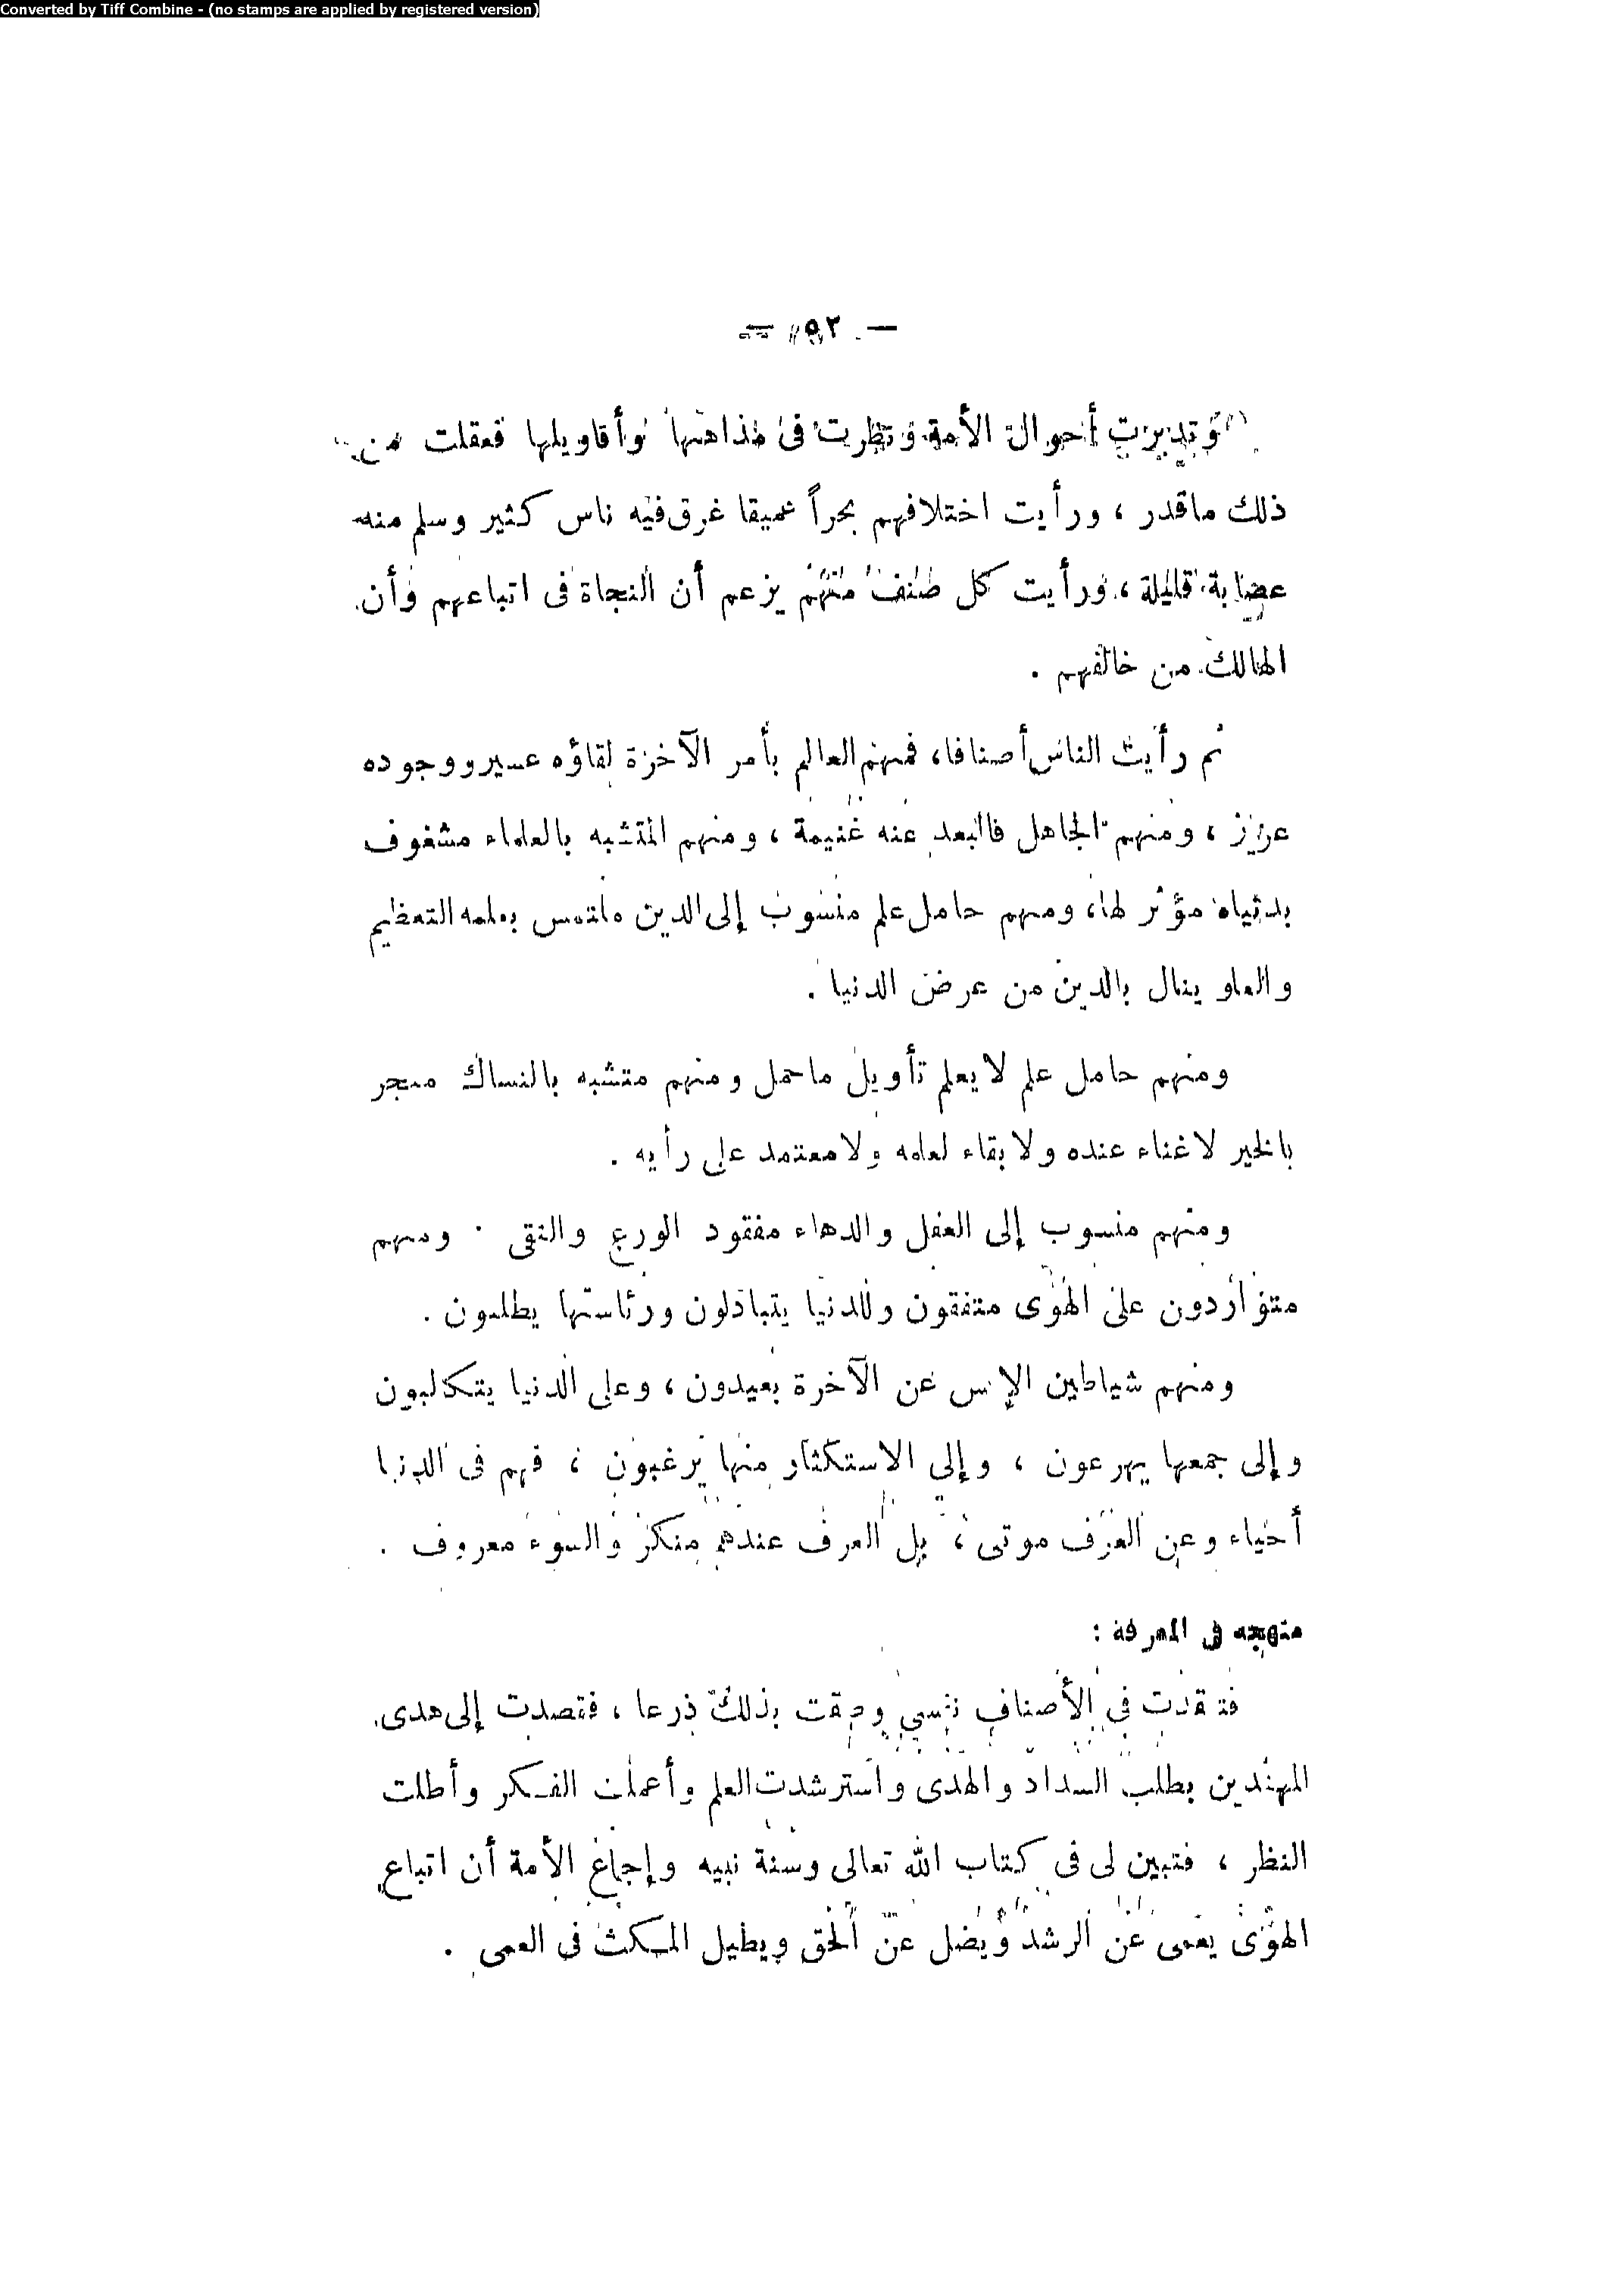 Converted by Tiff Combine - (no stamps are applied by registered version)
— ٥٢ —
وتدبرت أحوال الأمة ونظرت فى مذاهبها وأقاويلها فعقلت من
ذلك ماقدر ، ورأيت اختلافهم بحراً عميقا غرق فيه ناس كثير وسلم منه
عصابة قليلة ، ورأيت كل صنف منهم يزعم أن النجاة فى اتباعهم وأن
الهالك من خالفهم .
ثم رأيت الناس أصنافا، فمنهم العالم بأمر الآخرة لقاؤه عسير ووجوده
عزيز ، ومنهم الجاهل فالبعد عنه غنيمة ، ومنهم المتشبه بالعلماء مشغوف
بدنياه مؤثر لها، ومنهم حامل علم منسوب إلى الدين ملتمس بعلمه التعظيم
والعلو ينال بالدين من عرض الدنيا .
ومنهم حامل علم لا يعلم تأويل ماحمل ومنهم متشبه بالنساك متجر
بالخير لاغناء عنده ولا بقاء لعلمه ولا معتمد على رأيه .
ومنهم منسوب إلى العقل والدهاء مفقود الورع والتقى . ومنهم
متواردون على الهوى متفقون وللدنيا يتباذلون ورئاستها يطلبون .
ومنهم شياطين الإنس عن الآخرة بعيدون ، وعلى الدنيا يتكالبون
وإلى جمعها يهرعون ، وإلى الاستكثار منها يرغبون ، فهم فى الدنيا
أحياء وعن العرف موتى ، بل العرف عندهم منكر والسوء معروف .
منهجه فى المعرفة :
فتفقدت فى الأصناف نفسى وضقت بذلك ذرعا ، فقصدت إلى هدى
المهتدين بطلب السداد والهدى واسترشدت العلم وأعملت الفكر وأطلت
النظر ، فتبين لى فى كتاب الله تعالى وسنة نبيه وإجماع الأمة أن اتباع
الهوى يعمى عن الرشد ويضل عن الحق ويطيل المكث فى العمى .